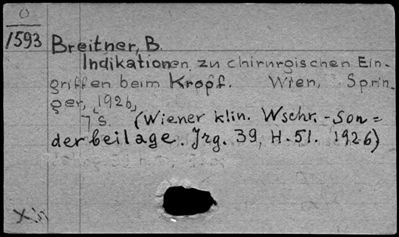 O
1593
Breitner, B.
Indikationen zu chirurgischen Ein-
griffen beim Kropf. Wien, Sprin-
ger, 1926,
7 S. (Wiener klin. Wschr.-Son=
derbeilage. Jrg. 39, H. 51. 1926)